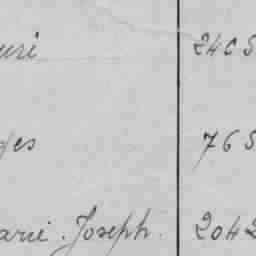 uri 2405
ges 765
arie Joseph. 2042